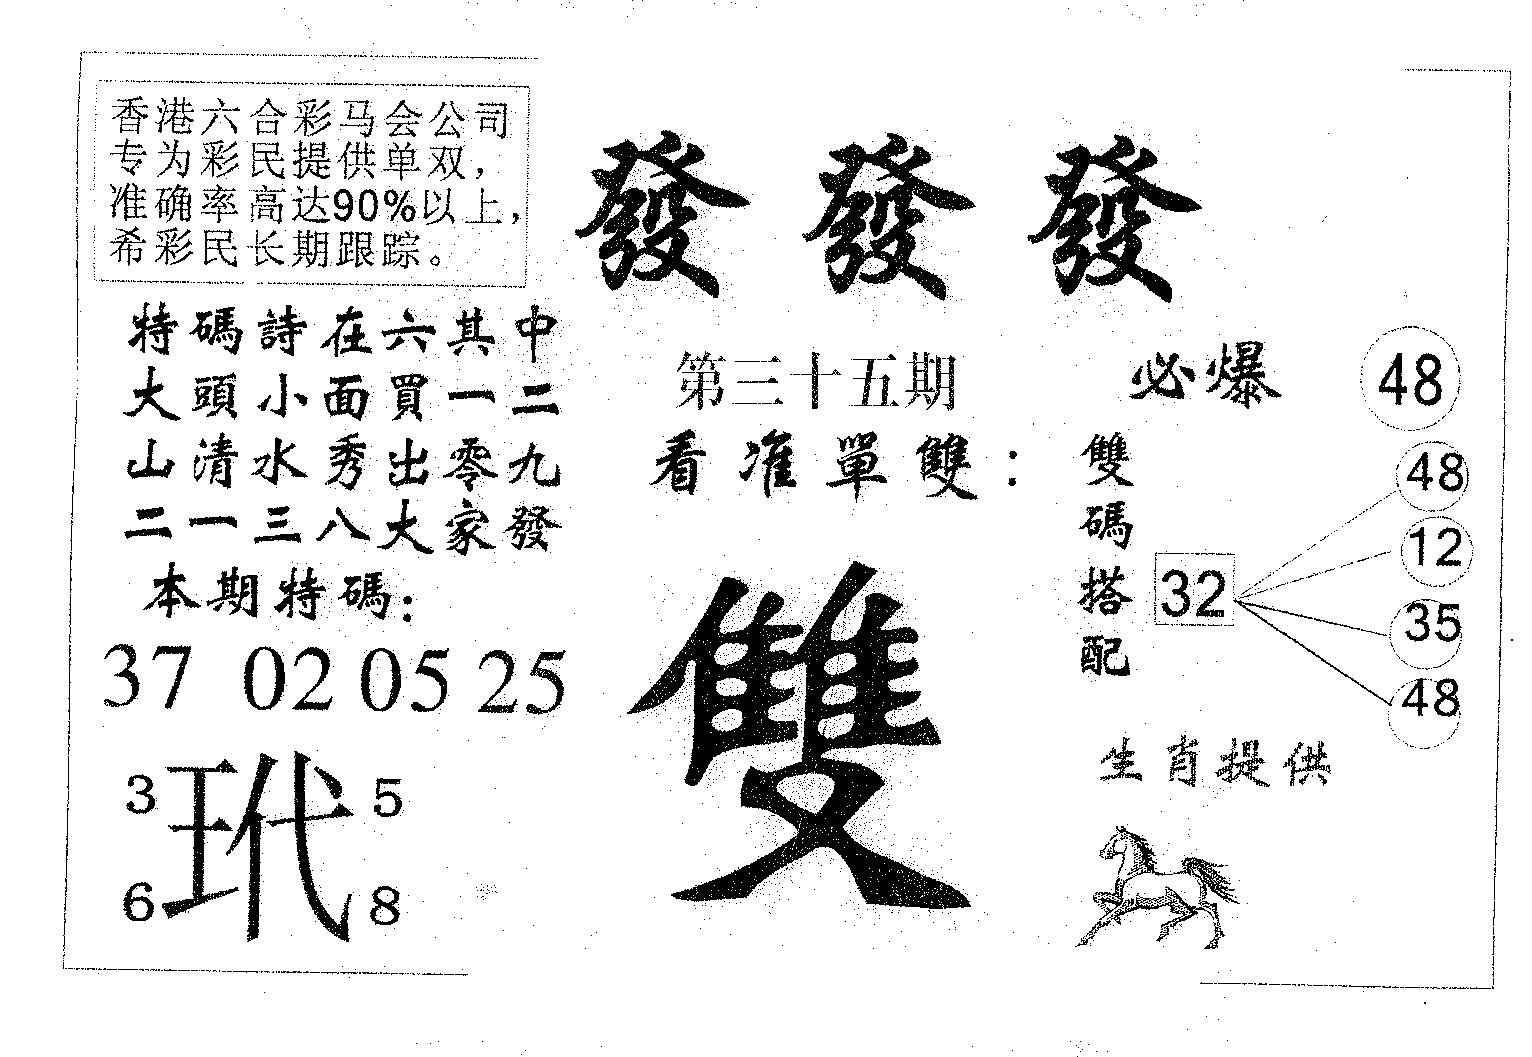 香港六合彩马会公司
专为彩民提供单双，
准确率高达90%以上，
希彩民长期跟踪。
發 發 發
特碼詩在六其中
大頭小面買一二
山清水秀出零九
二一三八大家發
本期特碼：
37 02 05 25
3 玳 5
6 8
第三十五期
看准單雙：
雙
必爆 48
雙碼搭配
32
48
12
35
48
生肖提供